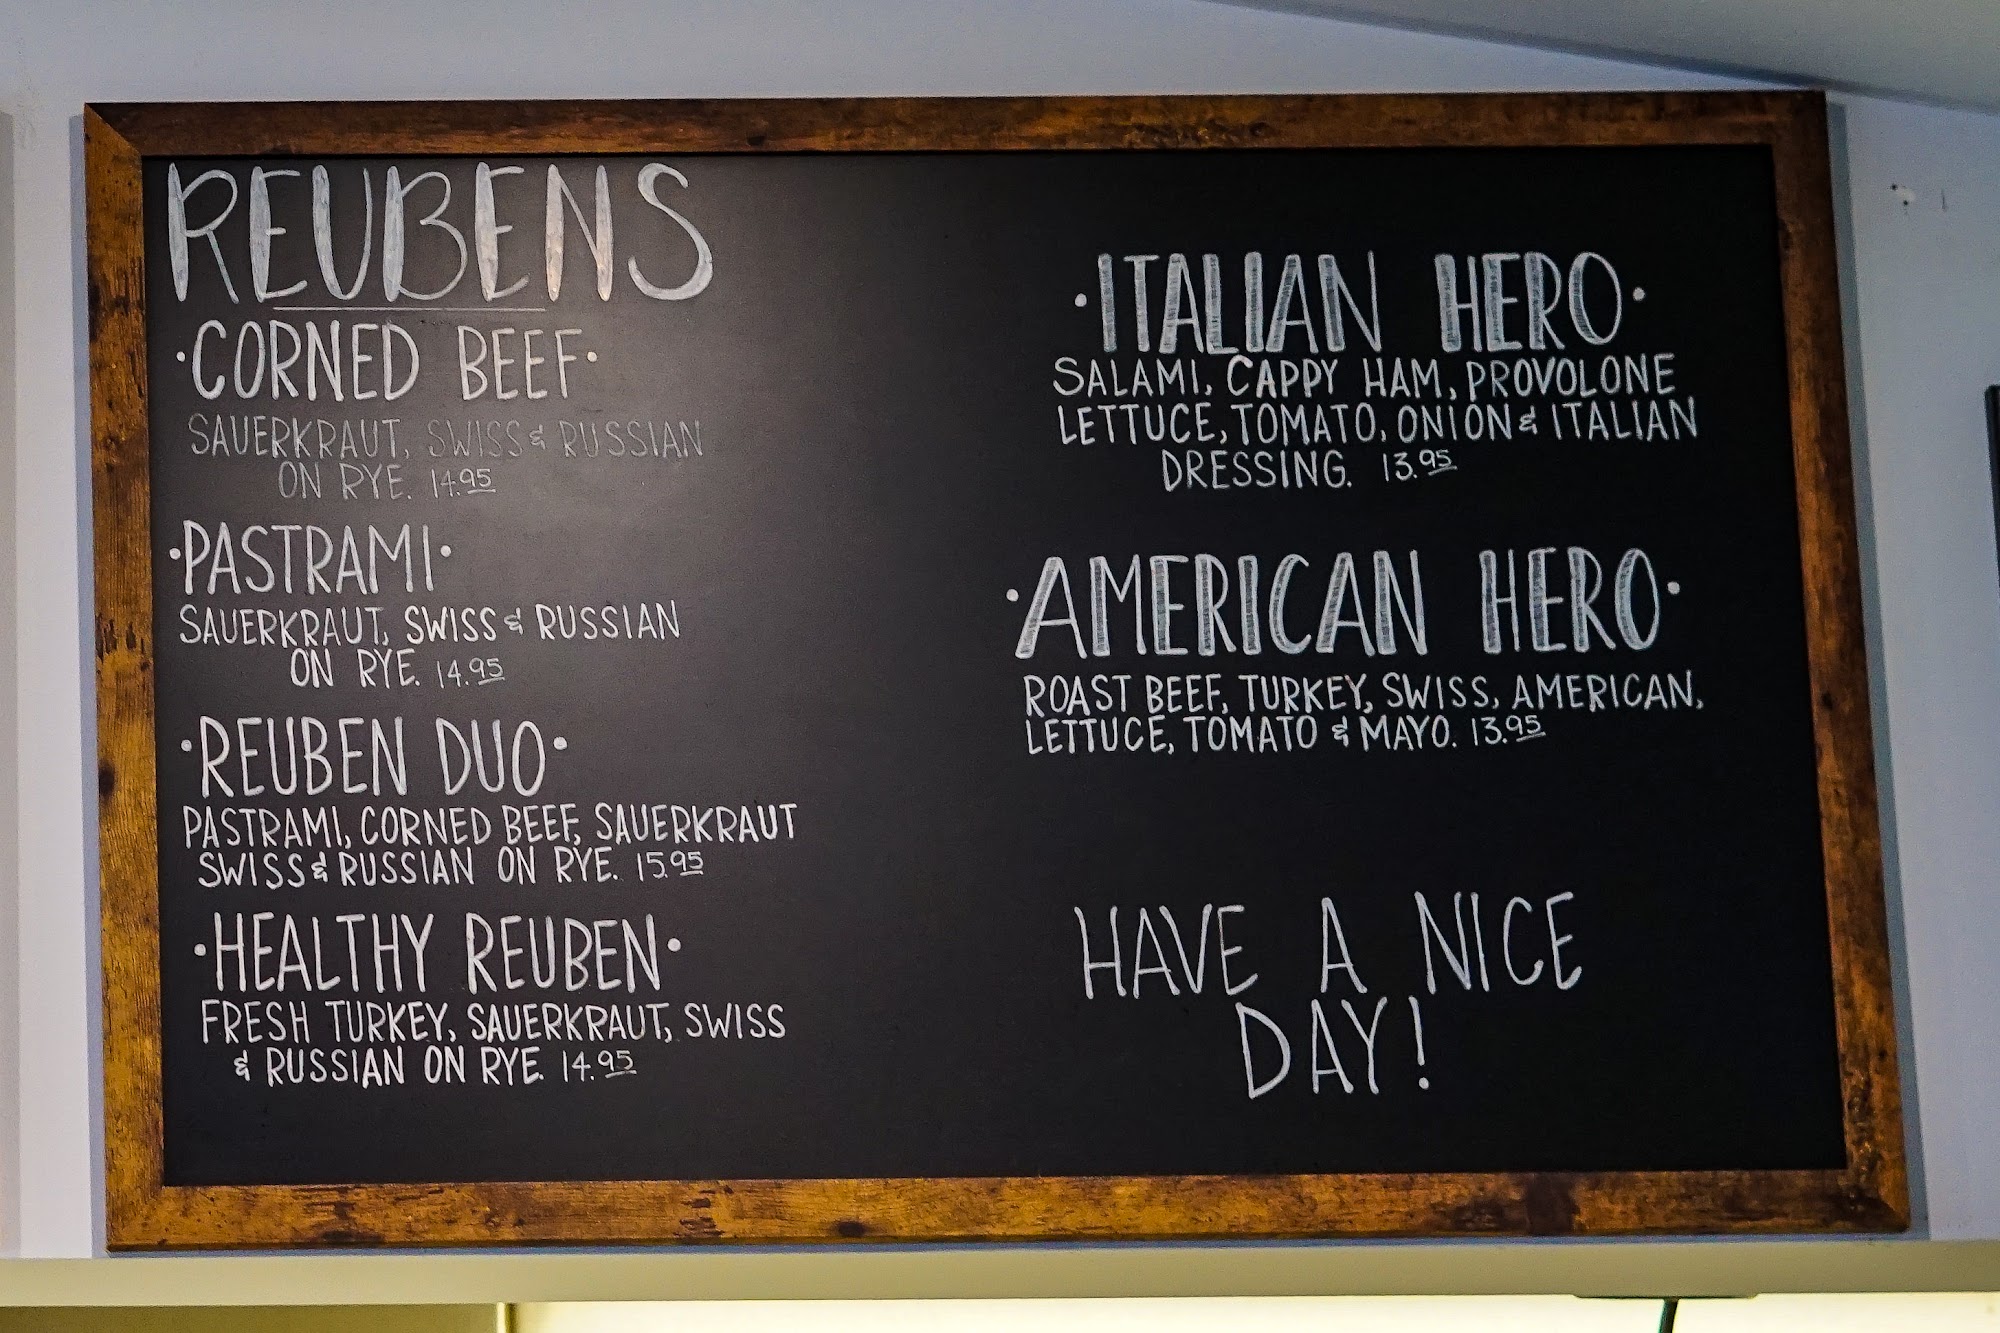 REUBENS
·CORNED BEEF·
SAUERKRAUT, SWISS & RUSSIAN
ON RYE. 14.95
·PASTRAMI·
SAUERKRAUT, SWISS & RUSSIAN
ON RYE. 14.95
·REUBEN DUO·
PASTRAMI, CORNED BEEF, SAUERKRAUT
SWISS & RUSSIAN ON RYE. 15.95
·HEALTHY REUBEN·
FRESH TURKEY, SAUERKRAUT, SWISS
& RUSSIAN ON RYE. 14.95
·ITALIAN HERO·
SALAMI, CAPPY HAM, PROVOLONE
LETTUCE, TOMATO, ONION & ITALIAN
DRESSING. 13.95
·AMERICAN HERO·
ROAST BEEF, TURKEY, SWISS, AMERICAN,
LETTUCE, TOMATO & MAYO. 13.95
HAVE A NICE
DAY!